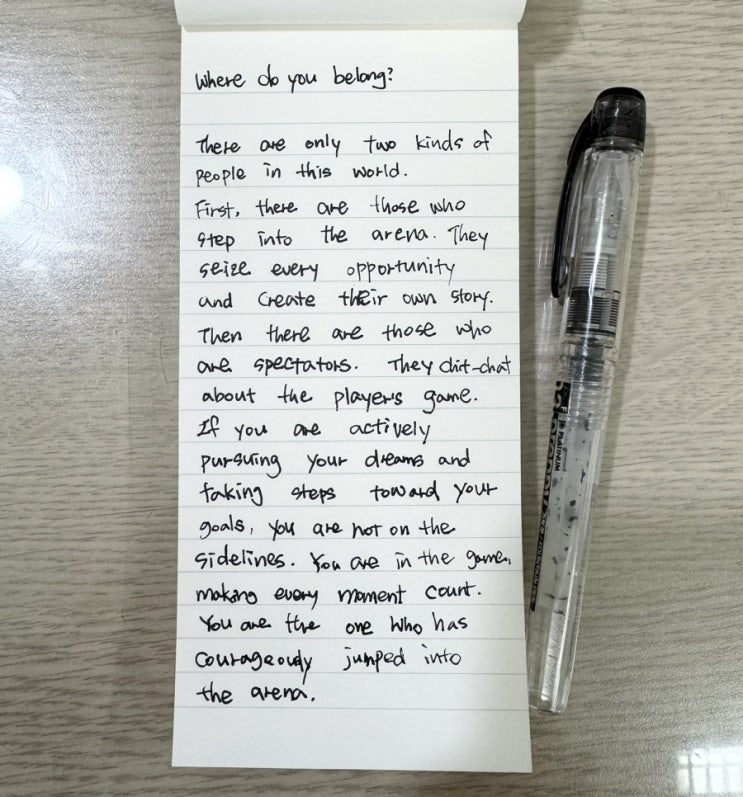 Where do you belong?
There are only two kinds of
people in this world.
First, there are those who
step into the arena. They
seize every opportunity
and create their own story.
Then there are those who
are spectators. They chit-chat
about the player's game.
If you are actively
pursuing your dreams and
taking steps toward your
goals, you are not on the
sidelines. You are in the game,
making every moment count.
You are the one who has
courageously jumped into
the arena.
PLATINUM